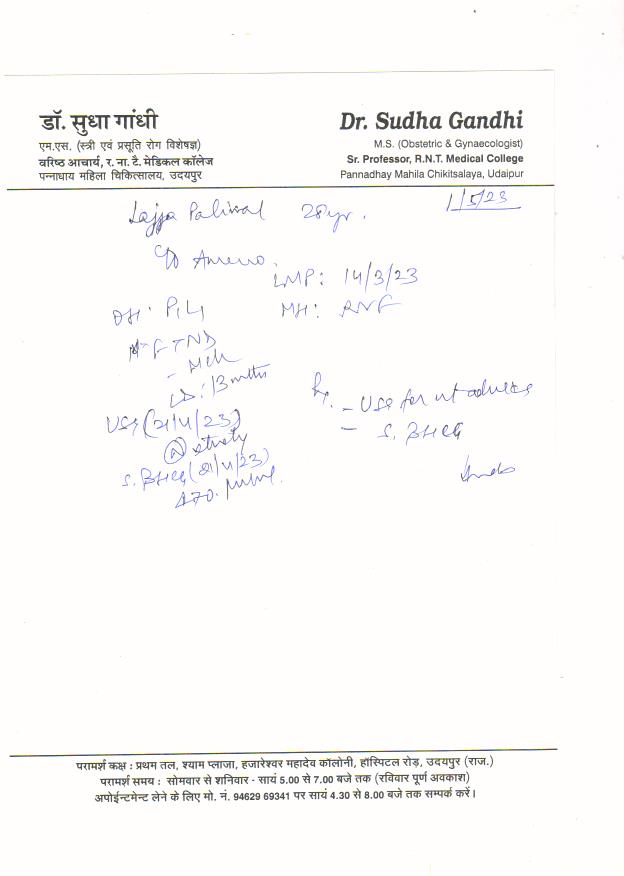 डॉ. सुधा गांधी
एम.एस. (स्त्री एवं प्रसूति रोग विशेषज्ञ)
वरिष्ठ आचार्य, र. ना. टै. मेडिकल कॉलेज
पन्नाधाय महिला चिकित्सालय, उदयपुर
Dr. Sudha Gandhi
M.S. (Obstetric & Gynaecologist)
Sr. Professor, R.N.T. Medical College
Pannadhay Mahila Chikitsalaya, Udaipur
1/5/23
Lajja Paliwal 28yr.
c/o Ameno.
LMP: 14/3/23
OH: P1L1
MH: RNF
FTND
- Mch
LD: 13 mths
USG (21/4/23)
(N) study
S. BHCG (21/4/23)
470.
Rx.
- USG for ut adnexa
- S. BHCG
परामर्श कक्ष : प्रथम तल, श्याम प्लाजा, हजारेश्वर महादेव कॉलोनी, हॉस्पिटल रोड़, उदयपुर (राज.)
परामर्श समय : सोमवार से शनिवार - सायं 5.00 से 7.00 बजे तक (रविवार पूर्ण अवकाश)
अपोईन्टमेन्ट लेने के लिए मो. नं. 94629 69341 पर सायं 4.30 से 8.00 बजे तक सम्पर्क करें।